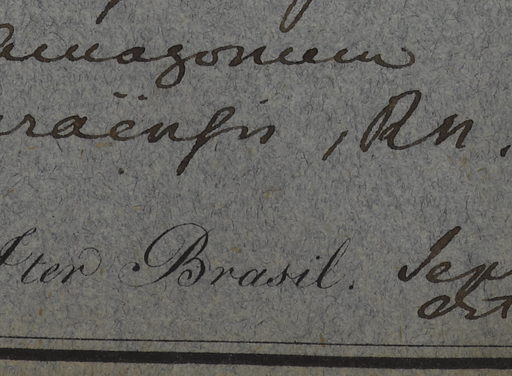 amazonum
raënsis, Rn.
Iter Brasil. Sep